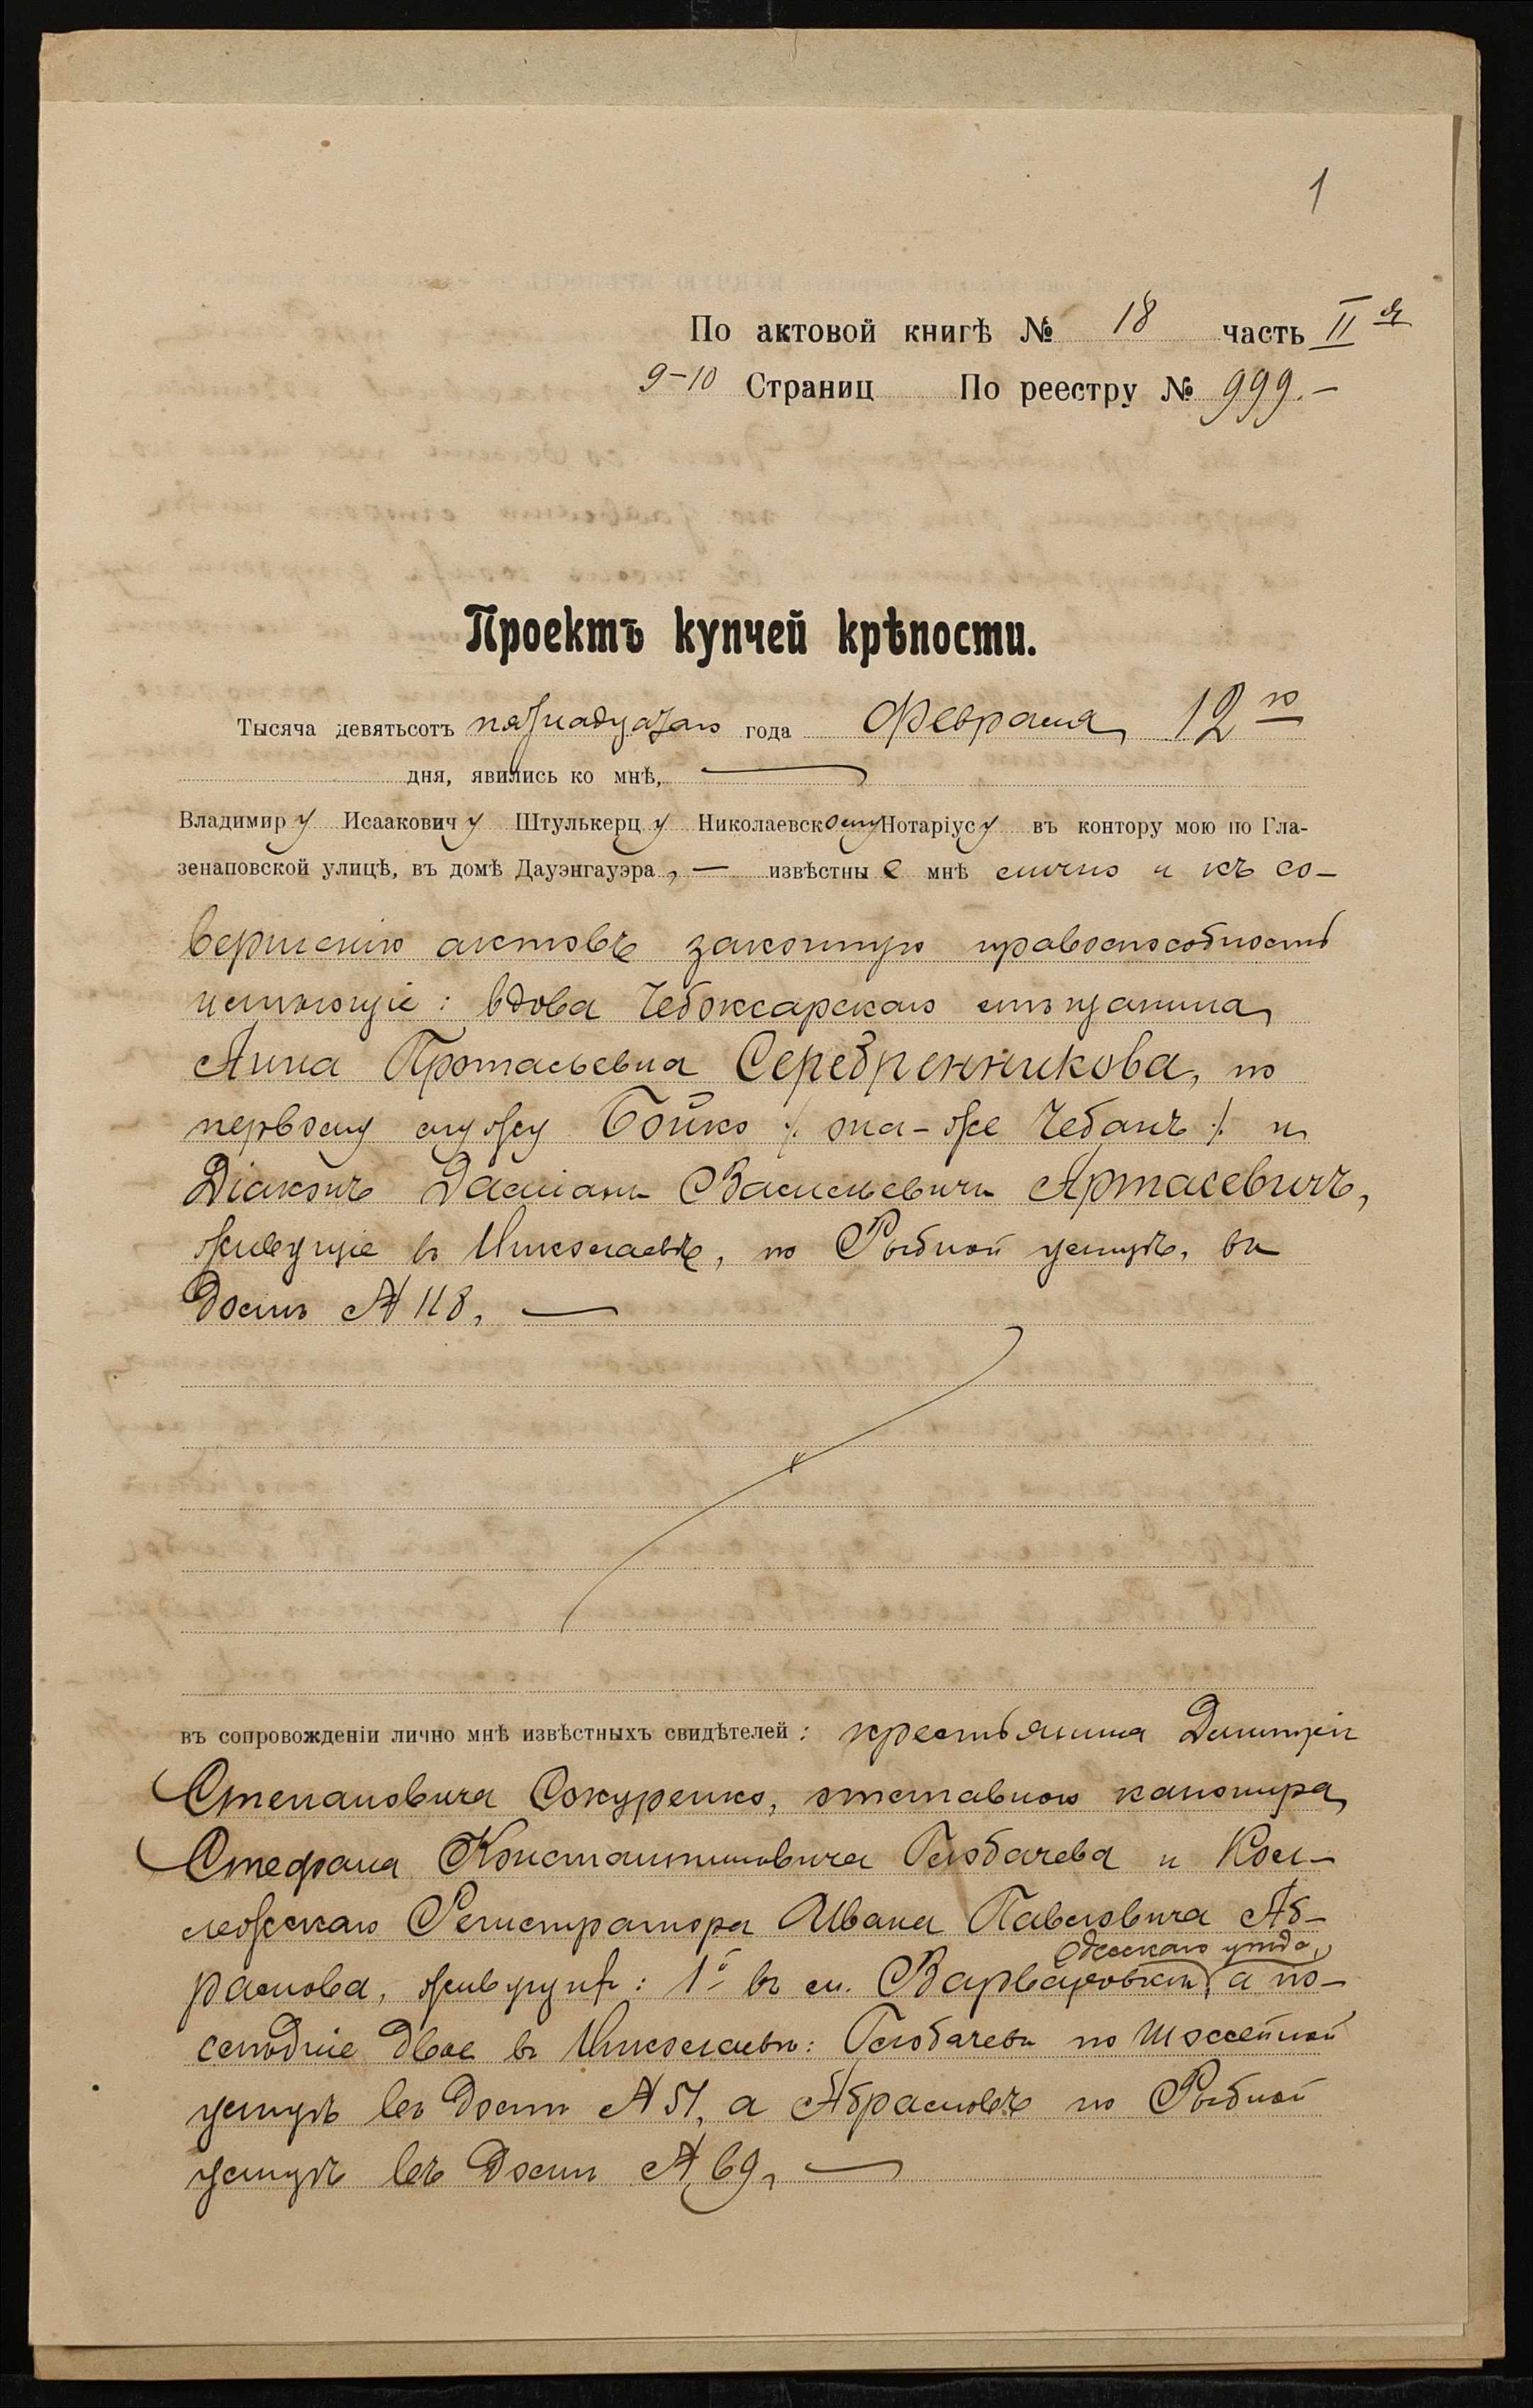 1
По актовой книгѣ № 18 часть II я
9-10 Страниц По реестру № 999.-
Проектъ купчей крѣпости.
Тысяча девятьсотъ пятнадцатаго года Февраля 12 го
дня, явились ко мнѣ,
Владимиру Исааковичу Штулькерцу Николаевскому Нотаріусу въ контору мою по Гла-
зенаповской улицѣ, въ домѣ Дауэнгауэра, — извѣстные мнѣ лично и къ со-
вершенію актовъ законную правоспособность
имѣющіе: вдова Чебоксарскаго мѣщанина
Анна Протасьевна Серебренникова, по
первому мужу Бойко /. она-же Чебанъ ./ и
Діаконъ Даміанъ Васильевичъ Артасевичъ,
живущіе въ Николаевѣ, по Рыбной улицѣ, въ
домѣ № 118, —
въ сопровожденіи лично мнѣ извѣстныхъ свидѣтелей: крестьянина Димитрія
Степановича Сокуренко, отставного канонира
Стефана Константиновича Голобачева и Кол-
лежскаго Регистратора Ивана Павловича Аб-
Одесскаго уѣзда,
рамова, живущихъ: 1й въ м. Варваровкѣ, а по-
слѣдніе двое въ Николаевѣ: Голобачевъ по Шоссейной
улицѣ въ домѣ № 51, а Абрамовъ по Рыбной
улицѣ въ домѣ № 69, —